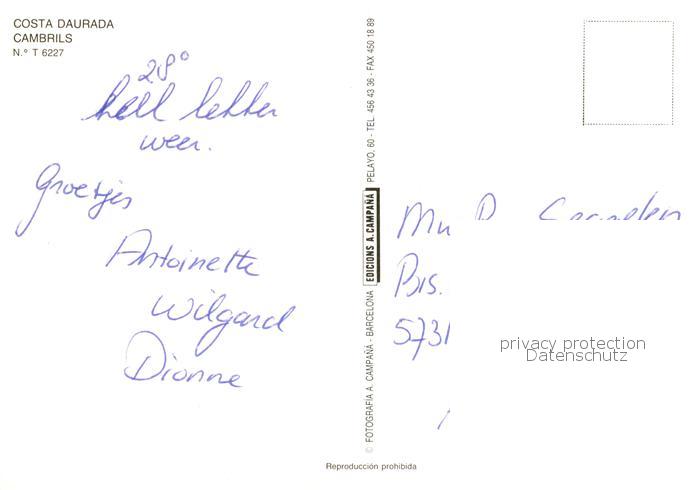 COSTA DAURADA
CAMBRILS
N.º T 6227
28°
heel lekker
weer.
Groetjes
Antoinette
Wilgard
Dionne
© FOTOGRAFIA A. CAMPAÑÁ - BARCELONA EDICIONS A. CAMPAÑÁ PELAYO, 60 - TEL. 456 43 36 - FAX 450 18 89
5731
privacy protection
Datenschutz
Reproducción prohibida